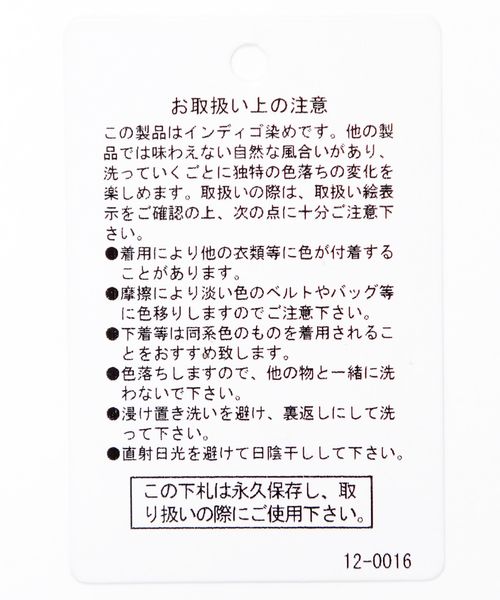 お取扱い上の注意
この製品はインディゴ染めです。他の製
品では味わえない自然な風合いがあり、
洗っていくごとに独特の色落ちの変化を
楽しめます。取扱いの際は、取扱い絵表
示をご確認の上、次の点に十分ご注意下
さい。
●着用により他の衣類等に色が付着する
ことがあります。
●摩擦により淡い色のベルトやバッグ等
に色移りしますのでご注意下さい。
●下着等は同系色のものを着用されるこ
とをおすすめ致します。
●色落ちしますので、他の物と一緒に洗
わないで下さい。
●浸け置き洗いを避け、裏返しにして洗
って下さい。
●直射日光を避けて日陰干しして下さい。
この下札は永久保存し、取
り扱いの際にご使用下さい。
12-0016